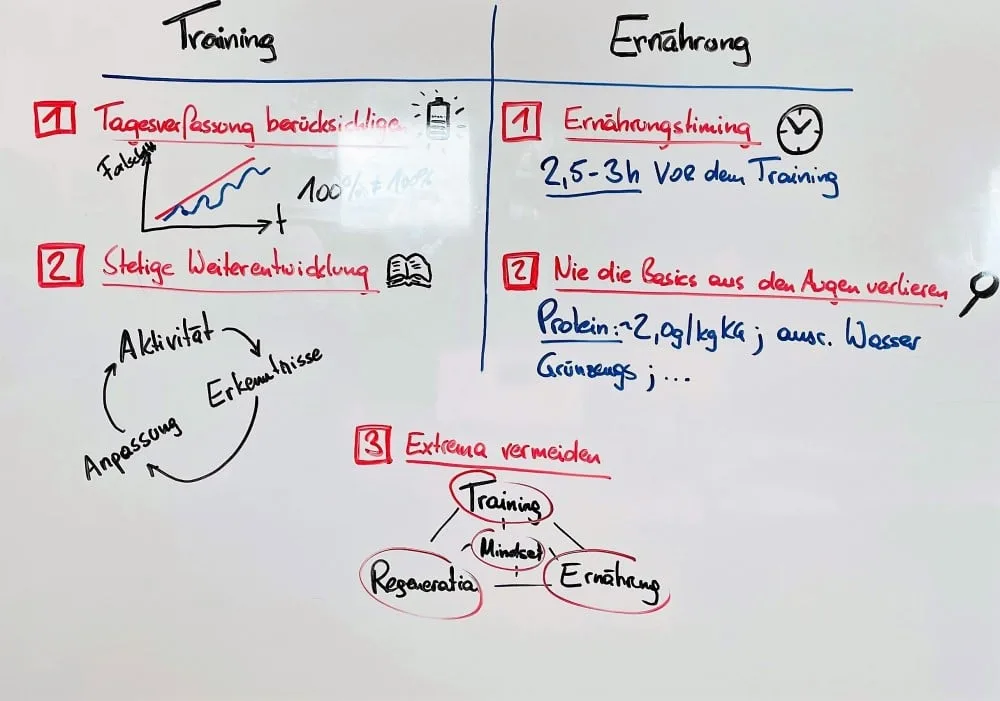 Training
Ernährung
1 Tagesverfassung berücksichtige
t
100% ≠ 100%
2 Stetige Weiterentwicklung
Aktivität
Erkenntnisse
Anpassung
1 Ernährungstiming
2,5-3h Vor dem Training
2 Nie die Basics aus den Augen verlieren
Protein: ~2,0g/kg KG ; ausr. Wasser
Grünzeugs ; ...
3 Extrema vermeiden
Training
Mindset
Regeneratio
Ernährung